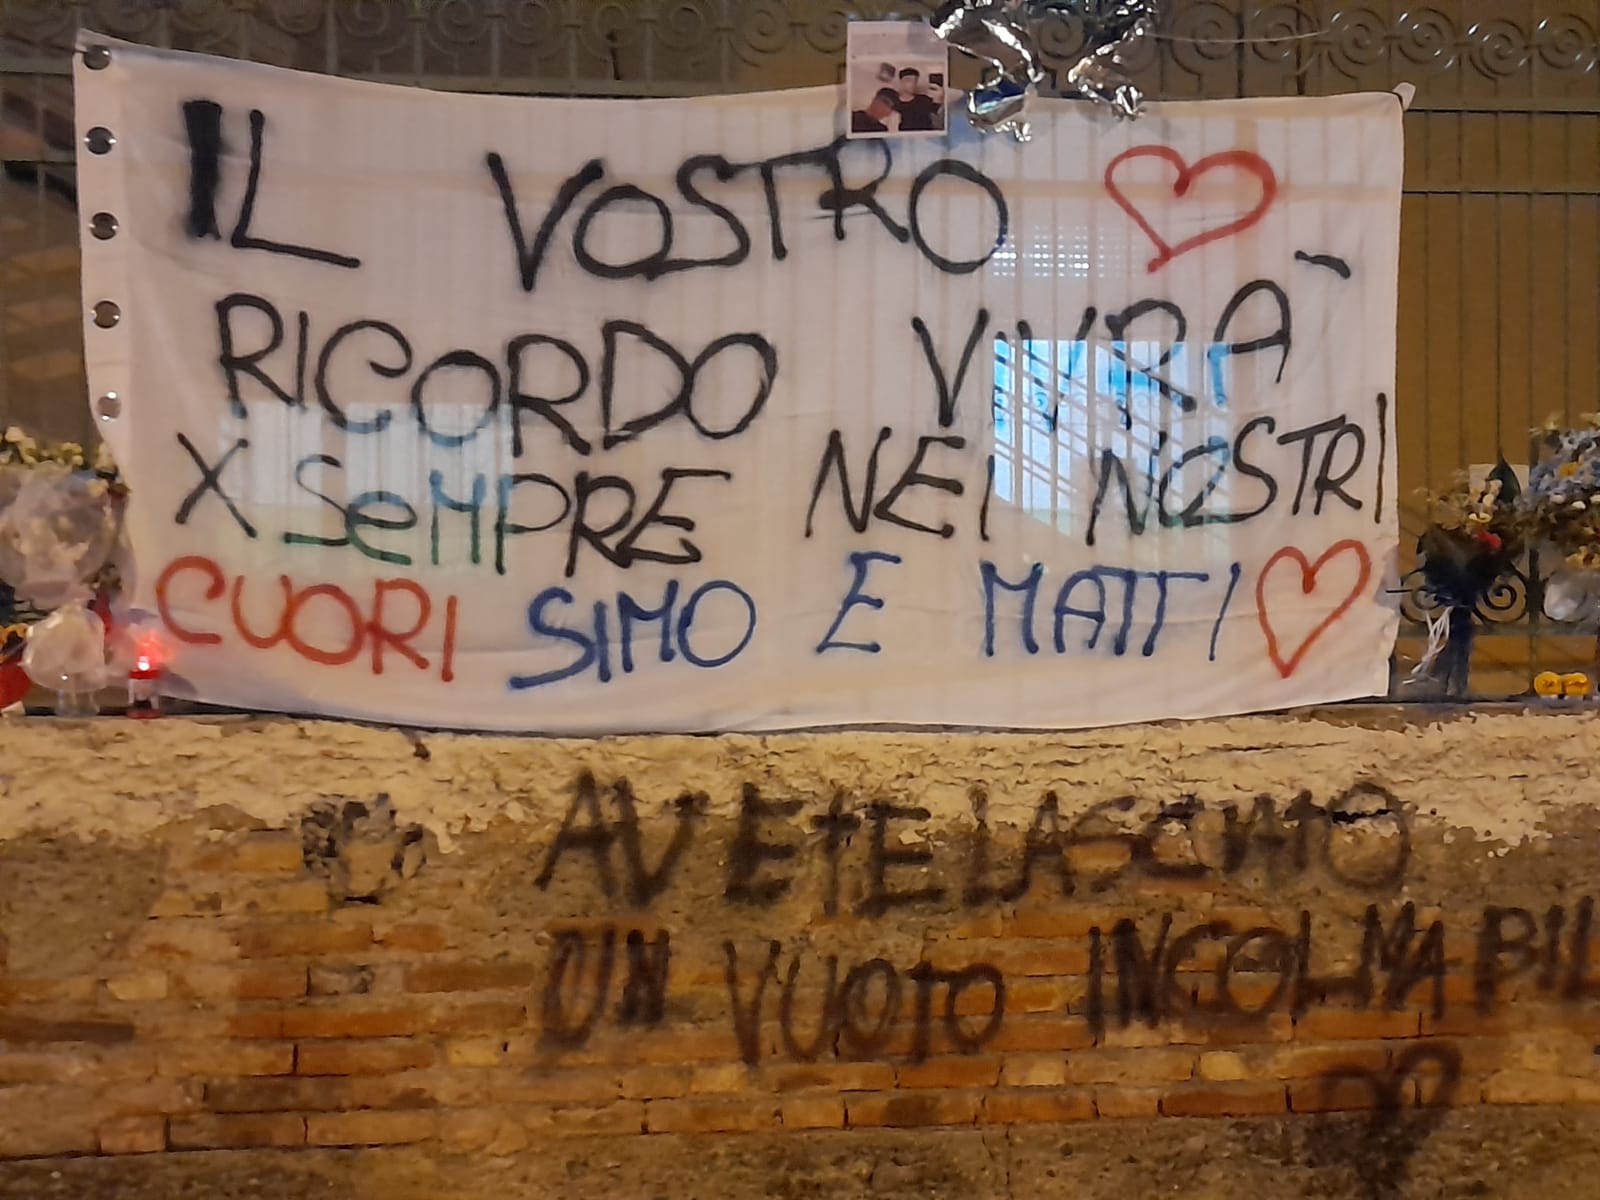 IL VOSTRO
RICORDO VIVRÀ
X SeMPRE NEI NOSTRI
CUORI SIMO E MATTI
AVETE LASCIATO
UN VUOTO INCOLMABIL